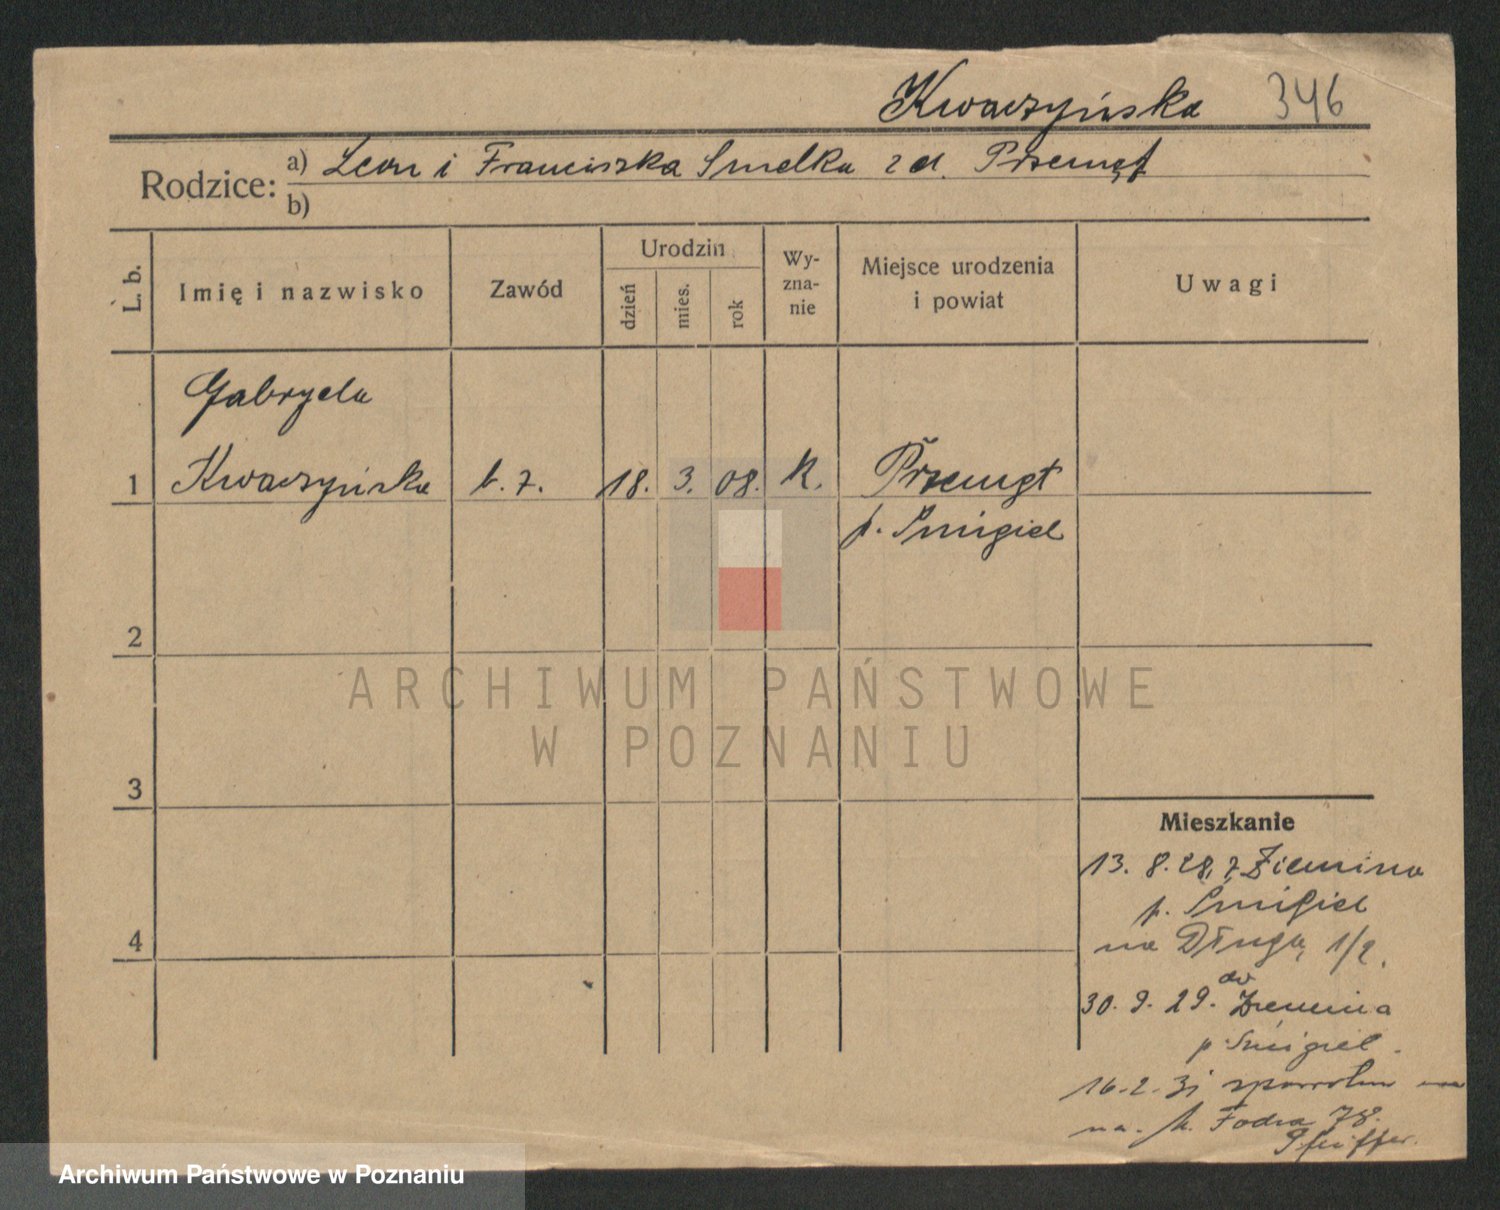 Kwaczyńska 346
Rodzice: a) Leon i Franciszka Smelka zd. Przemęt
b)
L. b.
Imię i nazwisko
Zawód
Urodzin
dzień
mies.
rok
Wy-
zna-
nie
Miejsce urodzenia
i powiat
Uwagi
Gabryela
1 Kwaczyńska b. z. 18. 3. 08. K. Przemęt
p. Śmigiel
2
3
4
Mieszkanie
13. 8. 28. z Ziemina
p. Śmigiel
na Długą 1/2.
30. 9. 29. do Ziemina
p. Śmigiel.
16.2.31
na 78.
Pfeiffer.
ARCHIWUM PAŃSTWOWE
W POZNANIU
Archiwum Państwowe w Poznaniu